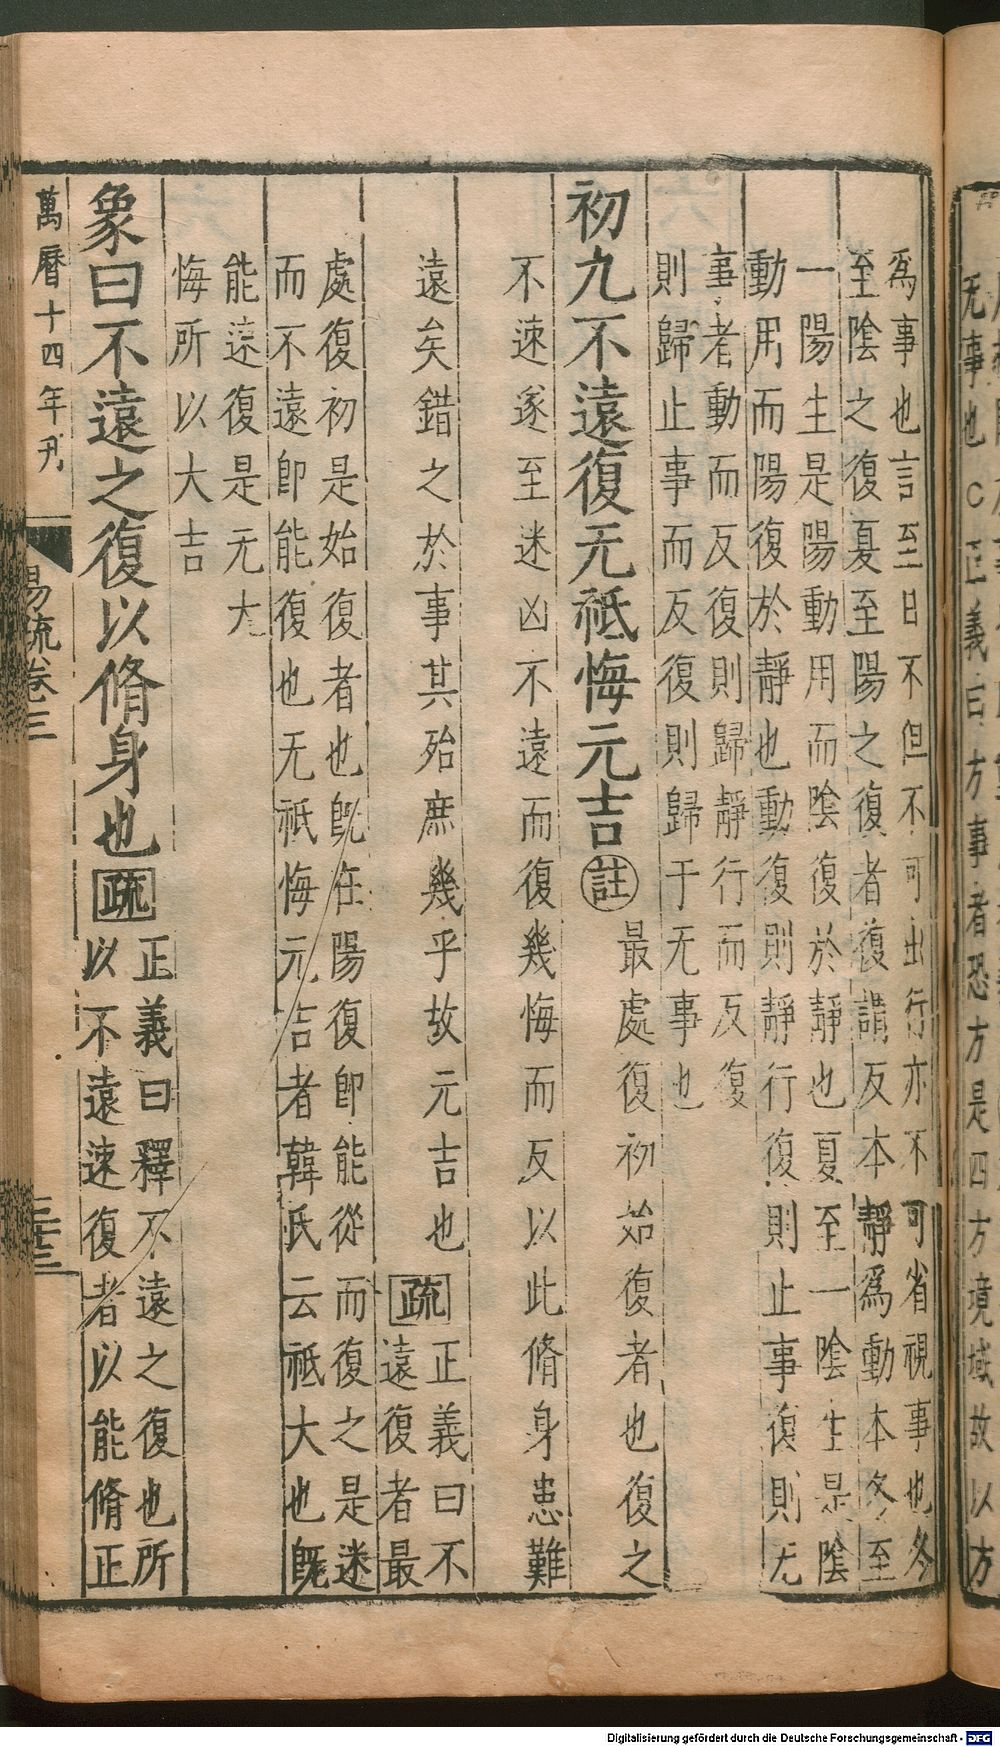 无事也○正義曰方事者恐方是四方境域故以方
爲事也言至日不但不可出行亦不可省視事也冬
至陰之復夏至陽之復者復謂反本靜爲動本冬至
一陽生是陽動用而陰復於靜也夏至一陰生是陰
動用而陽復於靜也動復則靜行復則止事復則无
事者動而反復則歸靜行而反復
則歸止事而反復則歸于无事也
初九不遠復无祇悔元吉註最處復初始復者也復之
不速遂至迷凶不遠而復幾悔而反以此脩身患難
遠矣錯之於事其殆庶幾乎故元吉也疏正義曰不
遠復者最
處復初是始復者也旣在陽復卽能從而復之是迷
而不遠卽能復也无祇悔元吉者韓氏云祇大也旣
能速復是无大
悔所以大吉
象曰不遠之復以脩身也疏正義曰釋不遠之復也所
以不遠速復者以能脩正
萬曆十四年刋
易疏卷三
二十三
Digitalisierung gefördert durch die Deutsche Forschungsgemeinschaft - DFG